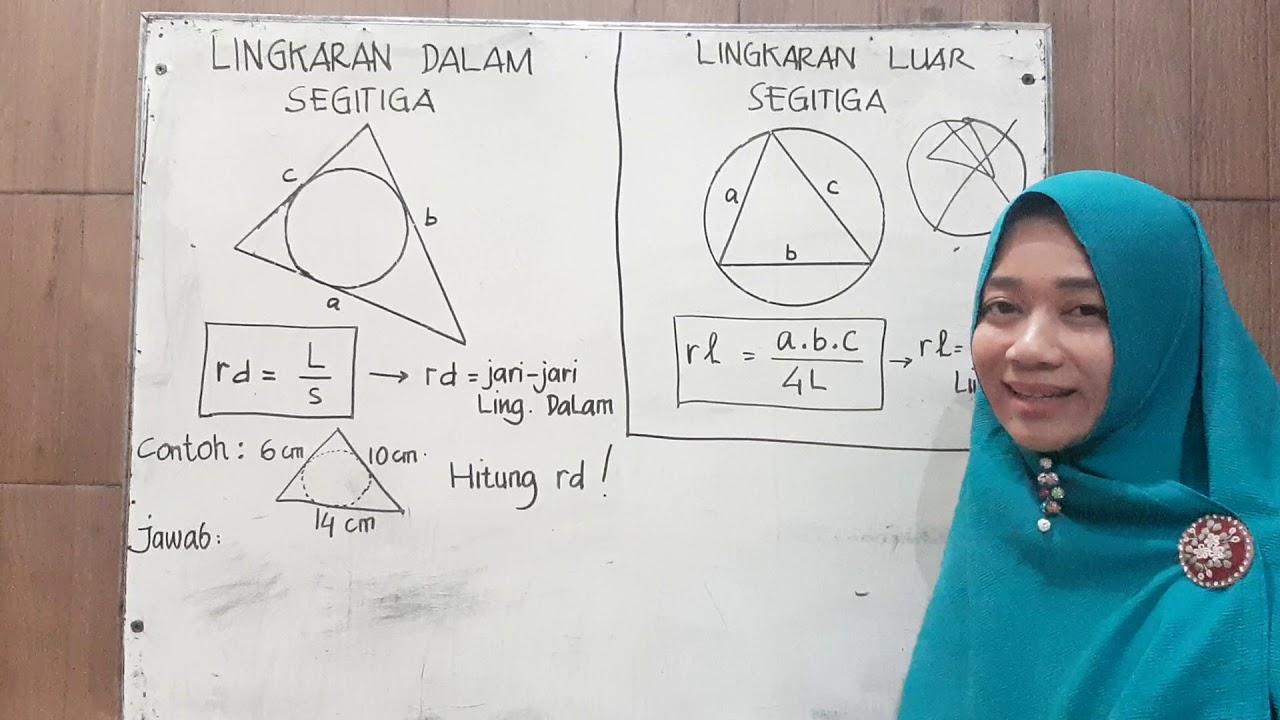 LINGKARAN DALAM
SEGITIGA
c
b
a
rd = L/s → rd = jari-jari
Ling. Dalam
Contoh: 6 cm 10 cm. Hitung rd!
14 cm
Jawab:
LINGKARAN LUAR
SEGITIGA
a
c
b
rl = a.b.c/4L → rl =